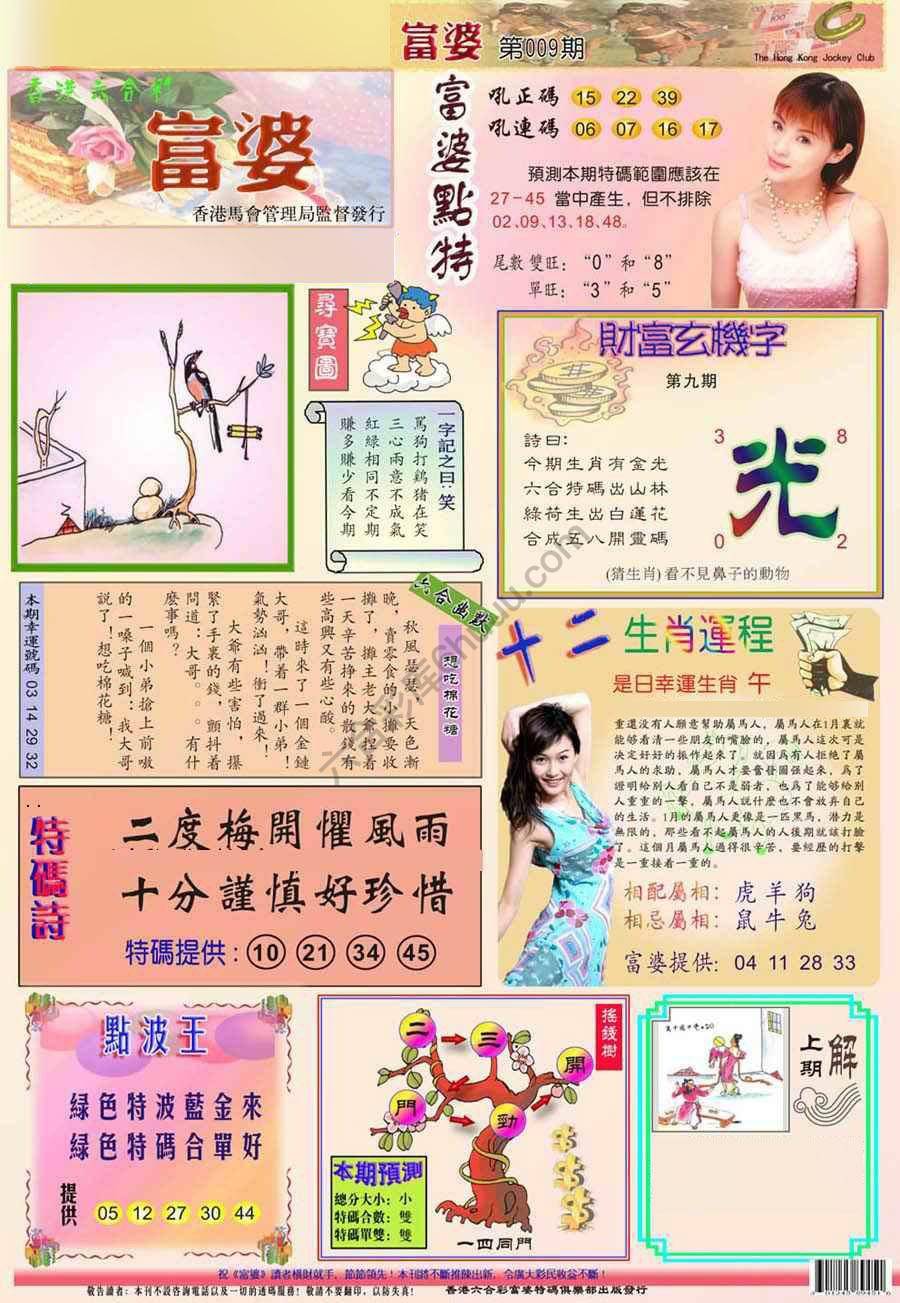 富婆 第009期
The Hong Kong Jockey Club
香港六合彩
富婆
香港馬會管理局監督發行
富婆點特
吼正碼 15 22 39
吼連碼 06 07 16 17
預測本期特碼範圍應該在
27-45 當中產生，但不排除
02、09、13、18、48。
尾數雙旺：“0”和“8”
單旺：“3”和“5”
尋寶圖
一字記之曰：笑
罵狗打鷄猪在笑
三心兩意不成氣
紅綠相同不定期
賺多賺少看今期
財富玄機字
第九期
詩曰：
今期生肖有金光
六合特碼出山林
綠荷生出白蓮花
合成五八開靈碼
3 8
光
0 2
(猜生肖)看不見鼻子的動物
六合幽默
想吃棉花糖
秋風瑟瑟，天色漸
晚，賣零食的小攤要收
攤了，攤主老大爺捏着
一天辛苦掙來的散錢有
些高興又有些心酸。
這時來了一個金鏈
大哥，帶着一群小弟！
氣勢汹汹！衝了過來！
大爺有些害怕，攥
緊了手裏的錢，顫抖着
問道：大哥。。。有什
麽事嗎？
一個小弟搶上前嗷
的一嗓子喊到：我大哥
説了！想吃棉花糖！
本期幸運號碼 03 14 29 32
十二生肖運程
是日幸運生肖 午
重還没有人願意幫助屬馬人，屬馬人在1月裏就
能够看清一些朋友的嘴臉的，屬馬人這次可是
决定好好的振作起來了，就因爲有人拒绝了屬
馬人的求助，屬馬人才要奮發圖强起來，爲了
證明給别人看自己不是弱者，也爲了能够給别
人重重的一擊，屬馬人説什麽也不會放弃自己
的生活。1月的屬馬人更像是一匹黑馬，潜力是
無限的，那些看不起屬馬人的人後期就該打臉
了。這個月屬馬人過得很辛苦，要經歷的打擊
是一重接着一重的。
相配屬相：虎羊狗
相忌屬相：鼠牛兔
富婆提供：04 11 28 33
特碼詩
二度梅開懼風雨
十分謹慎好珍惜
特碼提供：10 21 34 45
點波王
綠色特波藍金來
綠色特碼合單好
提供 05 12 27 30 44
搖錢樹
二 三 開
門 勁
本期預測
總分大小：小
特碼合數：雙
特碼單雙：雙
一四同門
上期解
祝《富婆》讀者橫財就手，節節領先！本刊將不斷推陳出新，令廣大彩民收益不斷！
敬告讀者：本刊不設咨詢電話以及一切的透碼服務！敬請不要翻印，以防失真！
香港六合彩富婆特碼俱樂部出版發行